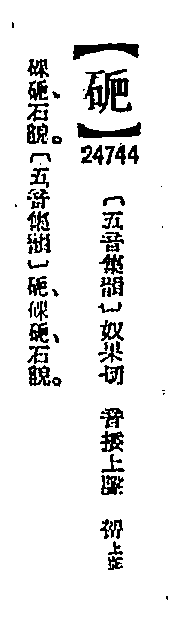 【砈】
24744
〔五音集韻〕奴果切 音捼上聲 哿上聲
砢砈、石貌。〔五音集韻〕砈、砢砈、石貌。